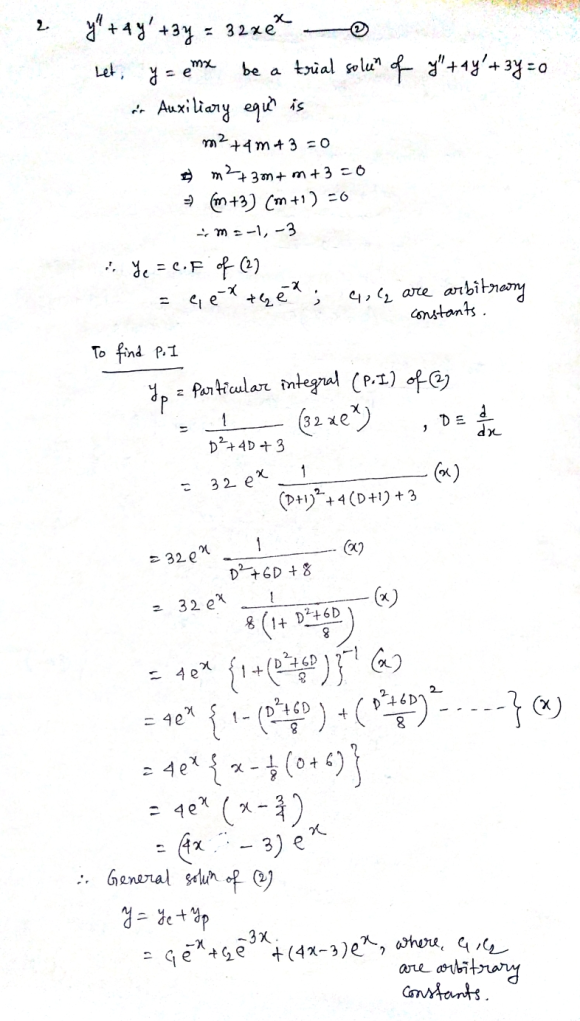 2. y'' + 4y' + 3y = 32xe^x —— ②
Let, y = e^{mx} be a trial solu^n of y''+4y'+3y=0
∴ Auxiliary equ^n is
m² + 4m + 3 = 0
⇒ m² + 3m + m + 3 = 0
⇒ (m+3) (m+1) = 0
∴ m = -1, -3
∴ y_c = C.F of (2)
= c₁ e^{-x} + c₂ e^{-x} ; c₁, c₂ are arbitrary
constants.
To find P.I
y_p = Particular integral (P.I) of ②
= 1/(D²+4D+3) (32xe^x) , D ≡ d/dx
= 32 e^x 1/((D+1)²+4(D+1)+3) (x)
= 32e^x 1/(D²+6D+8) (x)
= 32 e^x 1/(8(1+ (D²+6D)/8)) (x)
= 4e^x {1+((D²+6D)/8)}^{-1} (x)
= 4e^x { 1-((D²+6D)/8) + ((D²+6D)/8)² -----} (x)
= 4e^x { x - 1/8 (0+6) }
= 4e^x (x - 3/4)
= (4x - 3) e^x
∴ General solu^n of (2)
y = y_c + y_p
= c₁e^{-x} + c₂e^{-3x} + (4x-3)e^x, where, c₁, c₂
are arbitrary
constants.